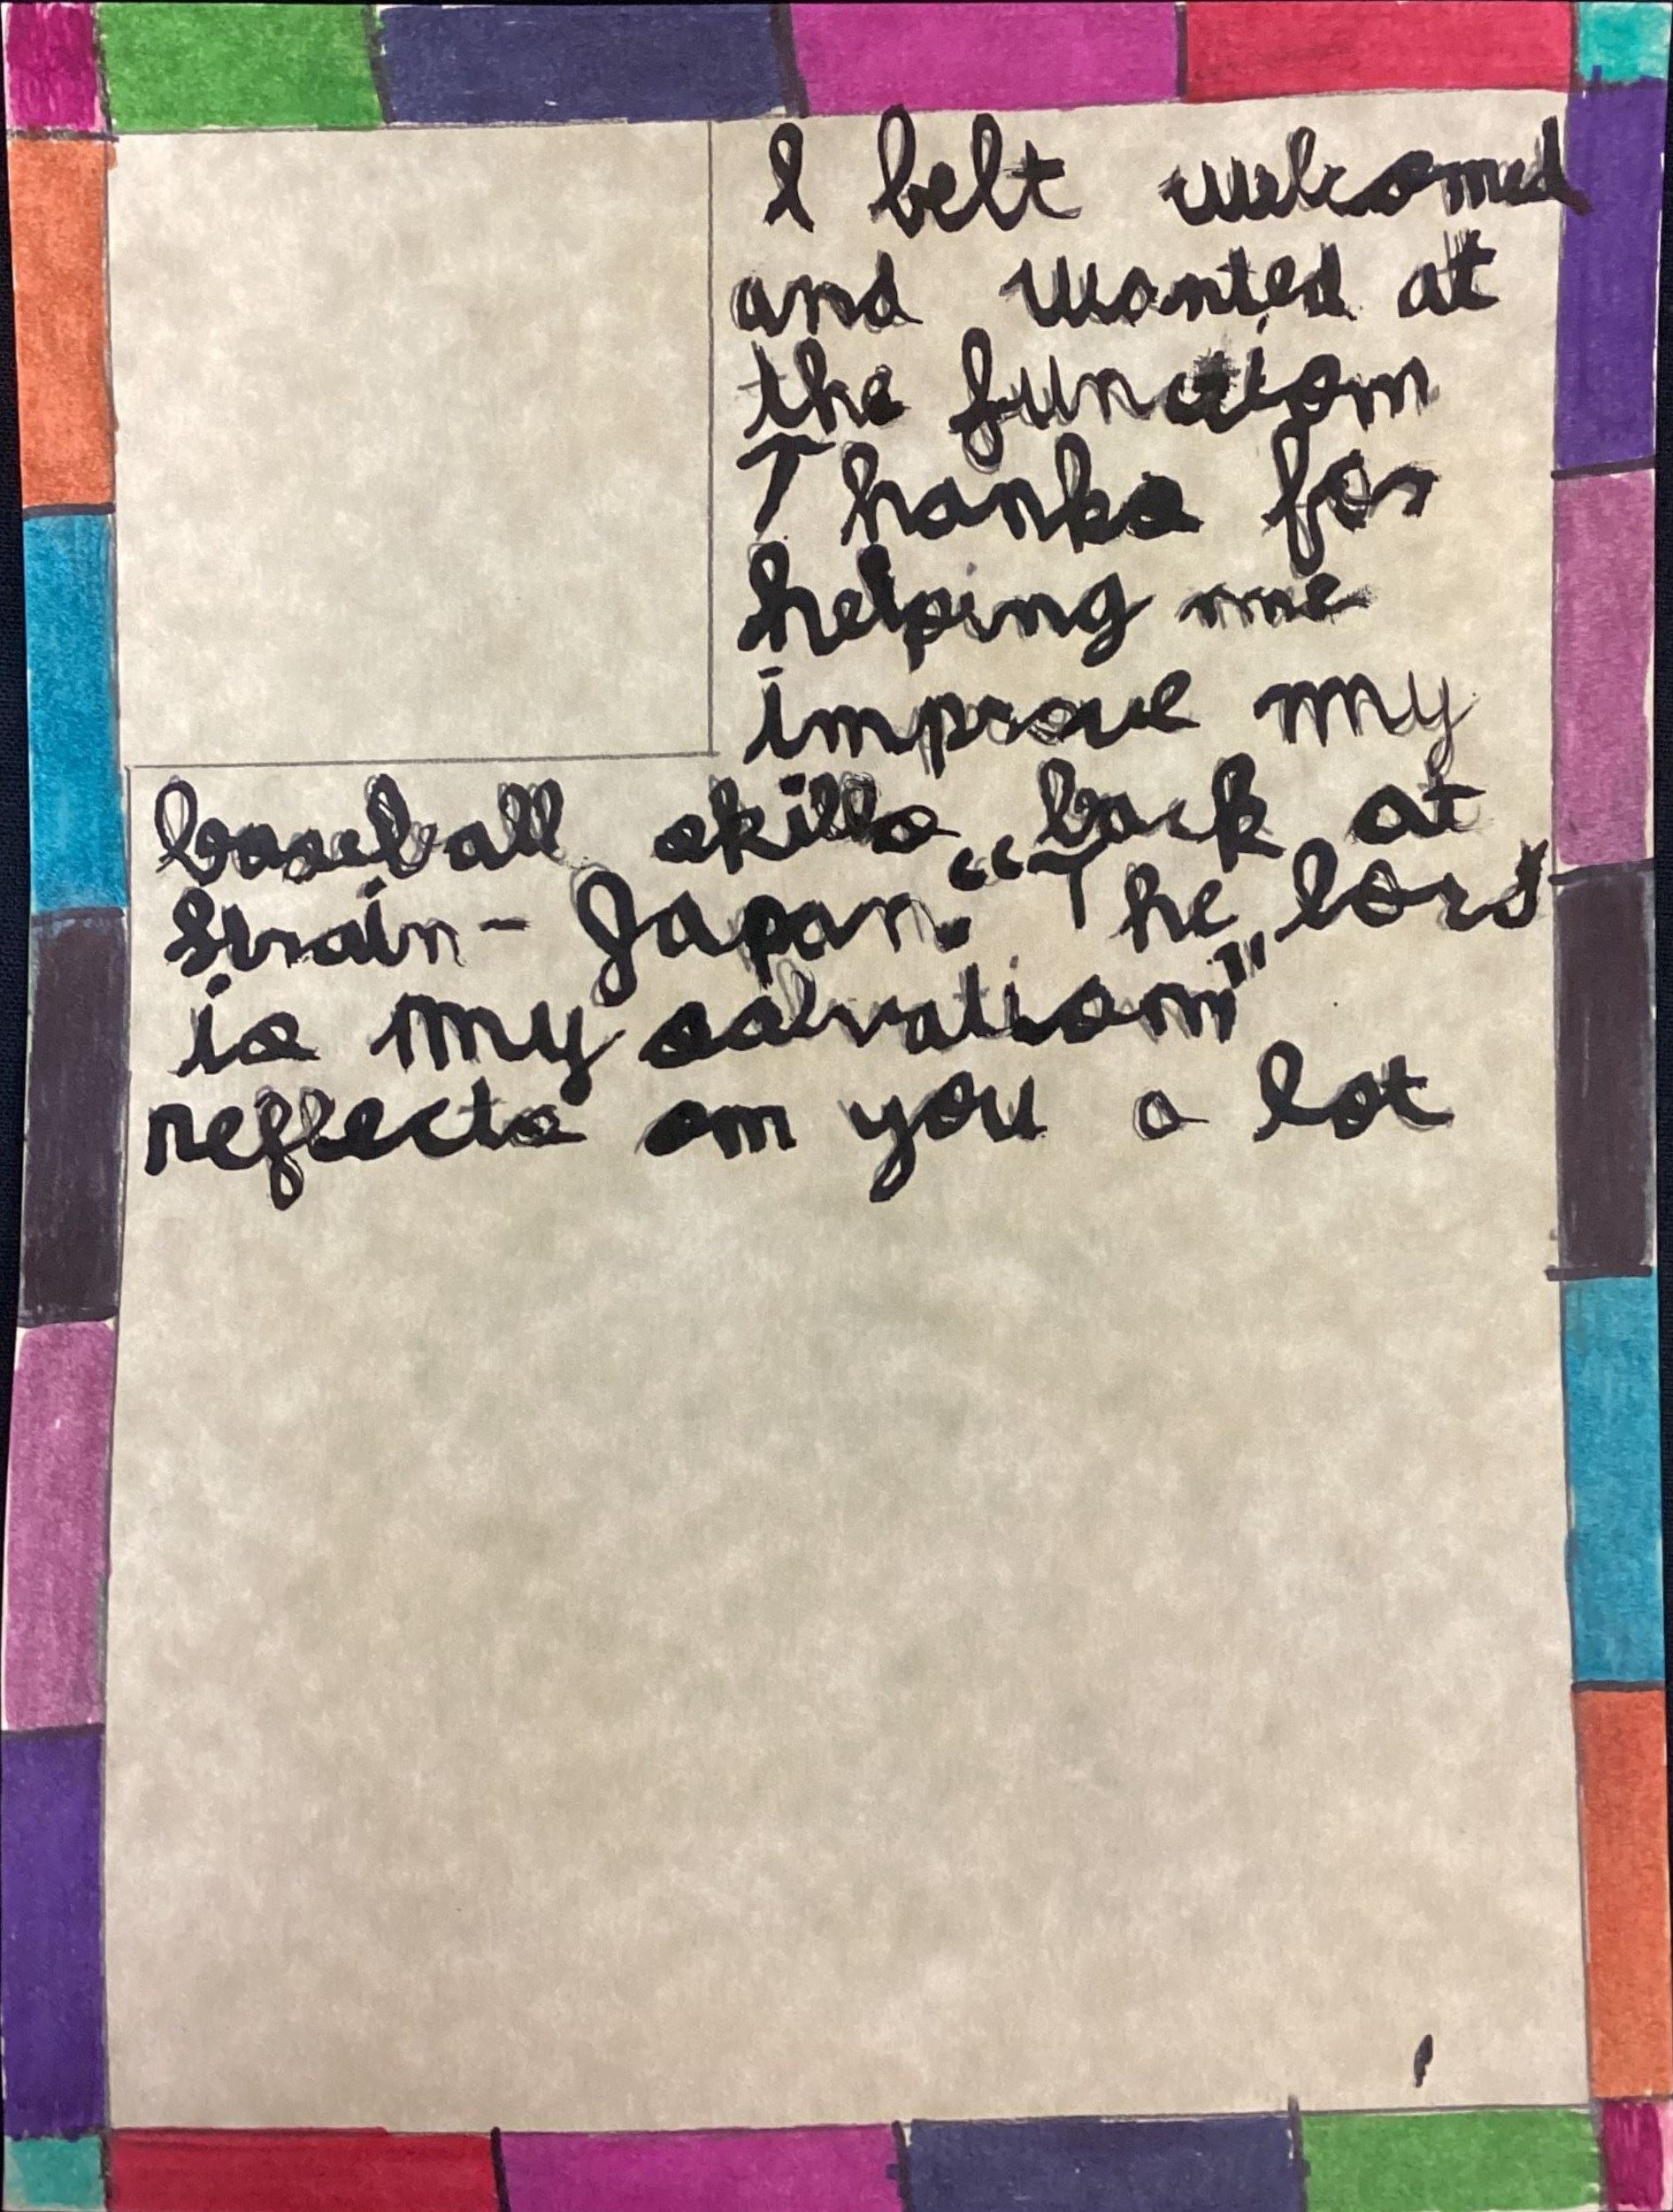 I belt welcomed
and wanted at
the function
Thanks for
helping me
improve my
baseball skills back at
- Japan. "The lord
is my salvation"
reflects on you a lot